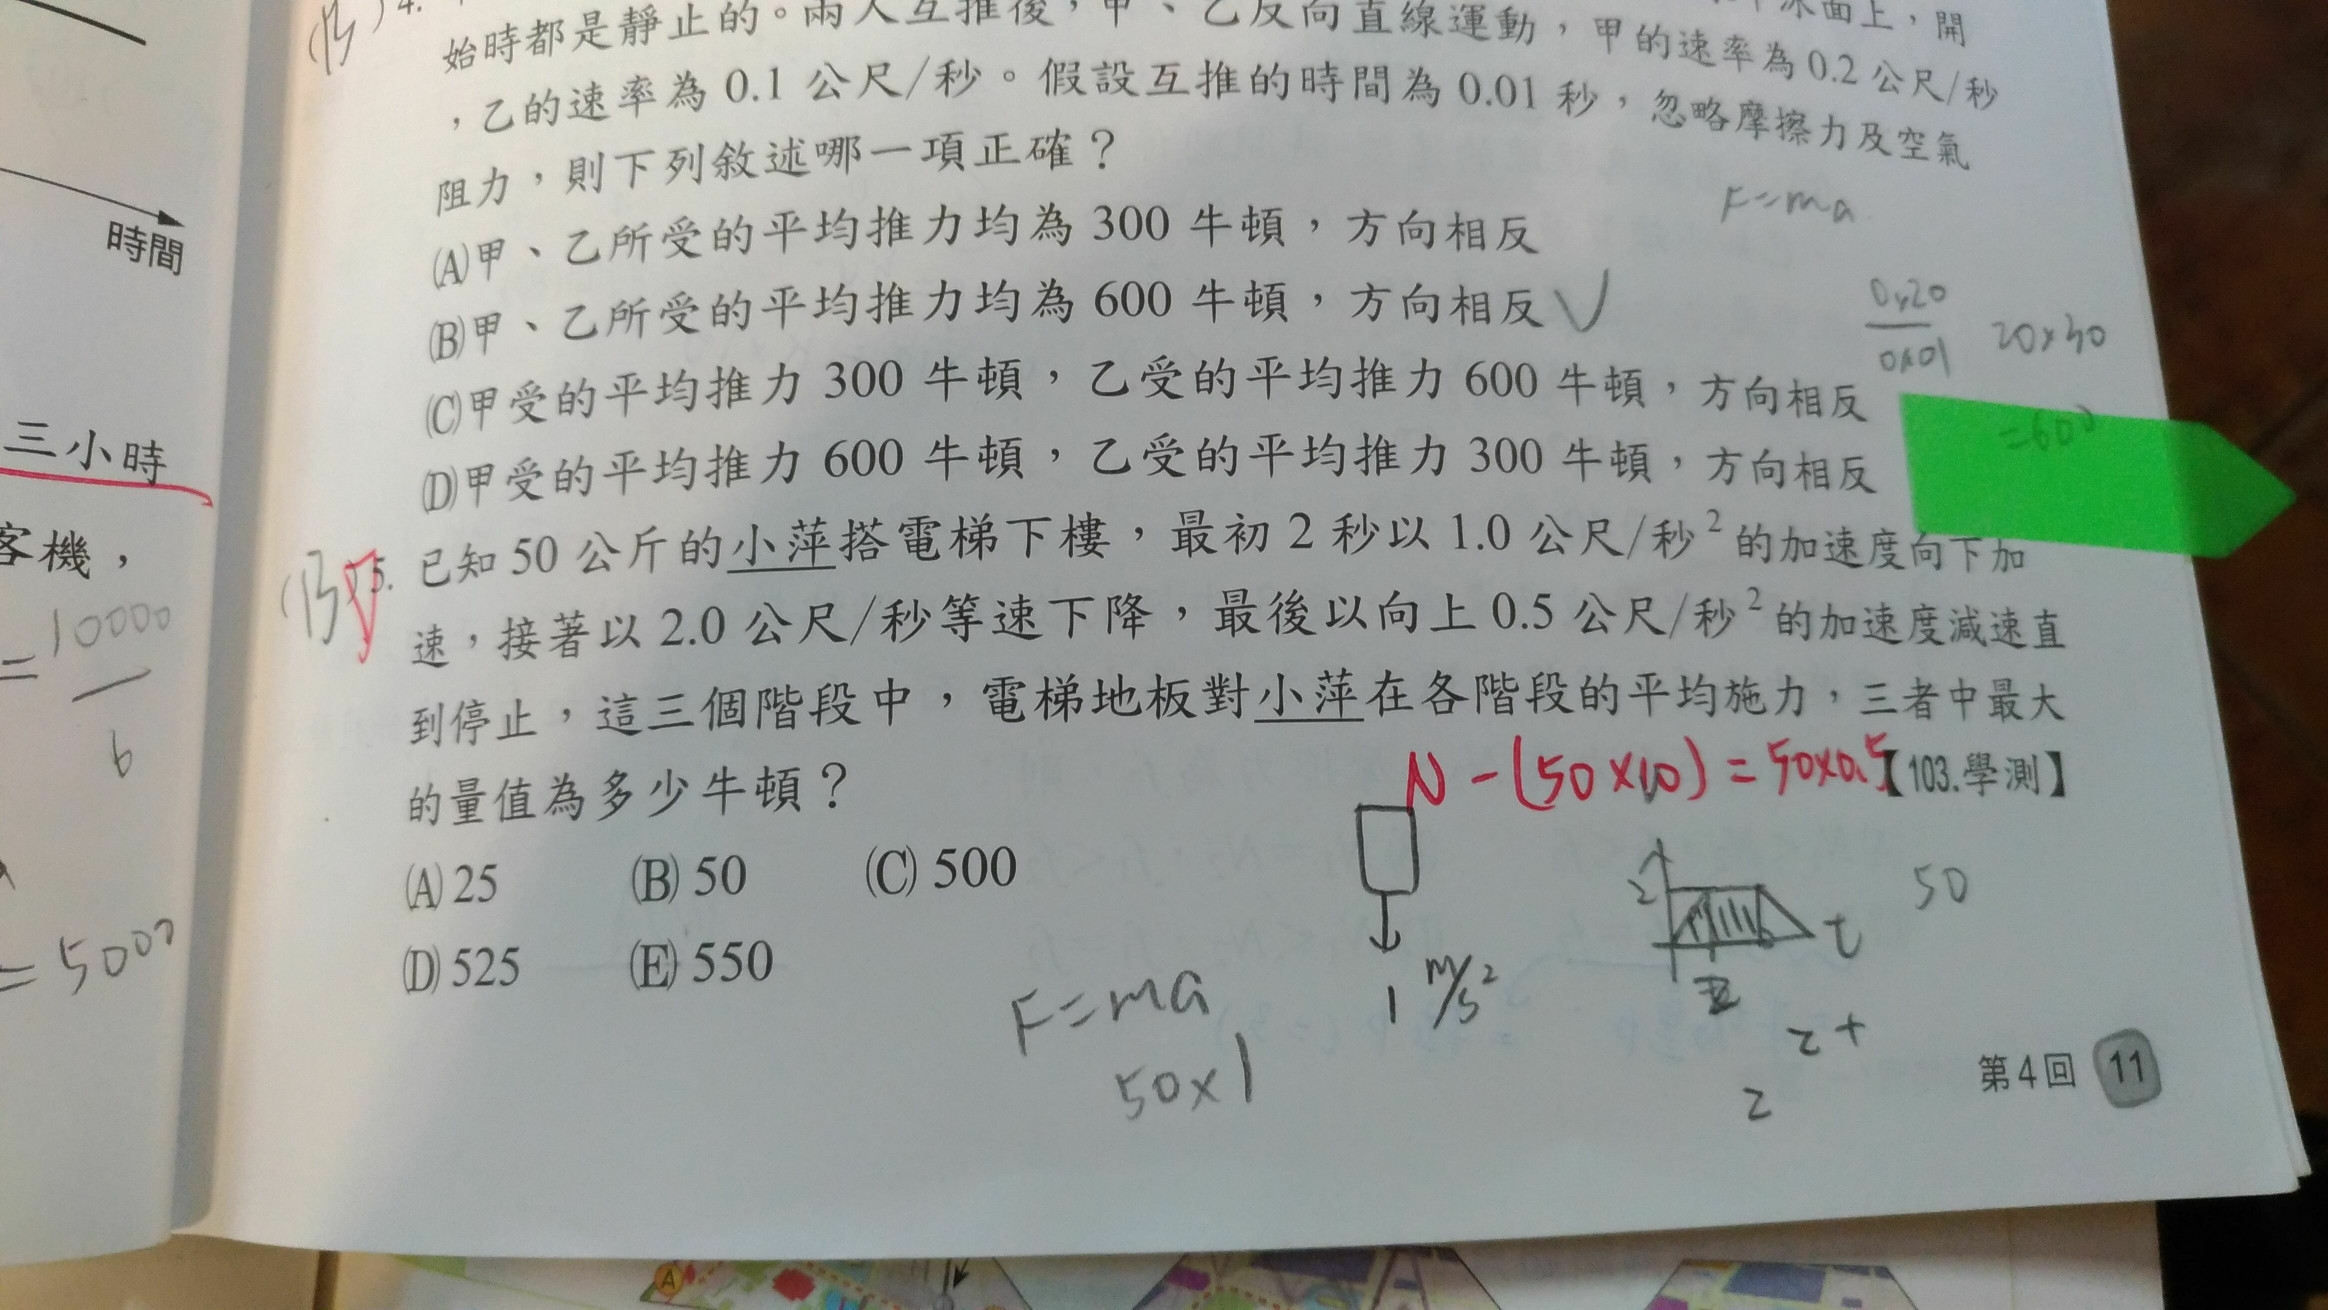 時間
三小時
客機，
= 10000
6
= 5000
(B) 4.
始時都是靜止的。兩人互推後，甲、乙反向直線運動，甲的速率為0.2公尺/秒
冰面上，開
，乙的速率為 0.1 公尺/秒。假設互推的時間為 0.01 秒，忽略摩擦力及空氣
阻力，則下列敘述哪一項正確？
F=ma
(A)甲、乙所受的平均推力均為 300 牛頓，方向相反
(B)甲、乙所受的平均推力均為 600 牛頓，方向相反
0.20
0.01
20×30
=600
(C)甲受的平均推力 300 牛頓，乙受的平均推力 600 牛頓，方向相反
(D)甲受的平均推力 600 牛頓，乙受的平均推力 300 牛頓，方向相反
(B) 5. 已知 50 公斤的小萍搭電梯下樓，最初 2 秒以 1.0 公尺/秒² 的加速度向下加
速，接著以 2.0 公尺/秒等速下降，最後以向上 0.5 公尺/秒² 的加速度減速直
到停止，這三個階段中，電梯地板對小萍在各階段的平均施力，三者中最大
的量值為多少牛頓？
N-(50×10)=50×0.5
【103.學測】
(A) 25 (B) 50 (C) 500
(D) 525 (E) 550
F=ma
50×1
1 m/s²
2
t
50
2+
2
第4回 11
A